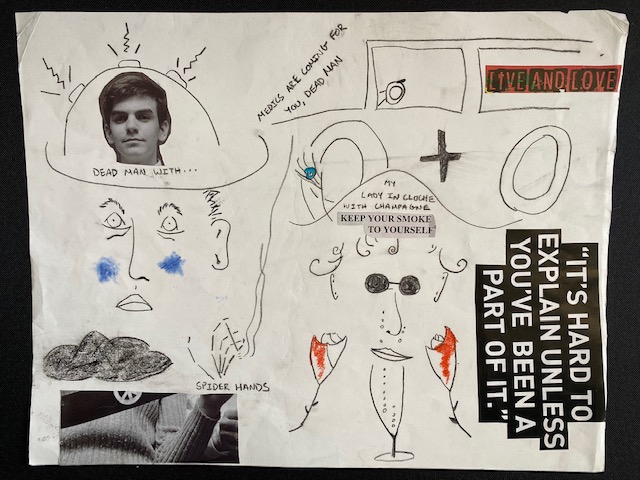 MEDICS ARE COMING FOR
YOU, DEAD MAN
LIVE AND LOVE
DEAD MAN WITH...
MY
LADY IN CLOCHE
WITH CHAMPAGNE
KEEP YOUR SMOKE
TO YOURSELF
"IT'S HARD TO
EXPLAIN UNLESS
YOU'VE BEEN A
PART OF IT."
SPIDER HANDS